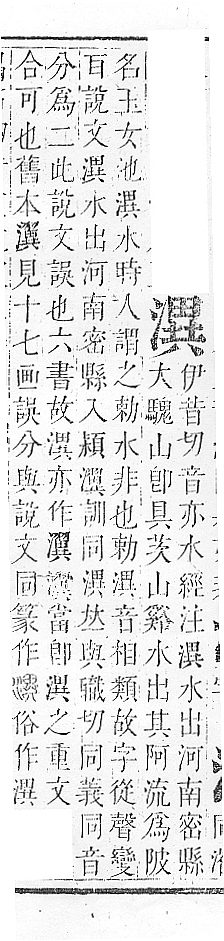 潩
伊昔切音亦水經注潩水出河南密縣
大騩山卽具茨山谿水出其阿流為陂
名玉女池潩水時人謂之勅水非也勅潩音相類故字從聲變
百說文潩水出河南密縣入潁瀷訓同潩𠀤與職切同義同音
分為二此說文誤也六書故潩亦作瀷當卽潩之重文
合可也舊本瀷見十七画誤分與說文同篆作俗作潩